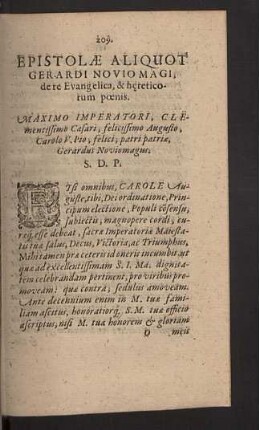 209.
EPISTOLÆ ALIQUOT
GERARDI NOVIOMAGI,
de re Evangelica, & hęretico-
rum pœnis.
MAXIMO IMPERATORI, CLE
mentissimo Cæsari, felicissimo Augusto,
Carolo V. Pio, felici, patri patriæ,
Gerardus Noviomagus.
S. D. P.
ETsi omnibus, CAROLE Au-
guste, tibi, Dei ordinatione, Prin-
cipum electione, Populi cõsensu,
subiectis, magnopere cordi, cu-
ręq́; esse debeat, sacræ Imperatoriæ Maiesta-
tis tuæ salus, Decus, Victoriæ, ac Triumphi,
Mihi tamen præ ceteris id oneris incumbit, ut
quæ ad excellentissimam S. I. Ma. dignita-
tem celebrandam pertinent, pro viribus pro-
moveam: quæ contra, sedulus amoveam.
Ante decennium enim in M. tuæ fami-
liam ascitus, honoratiorq́; S. M. tuæ officio
ascriptus, nisi M. tuæ honorem & gloriam
O meis